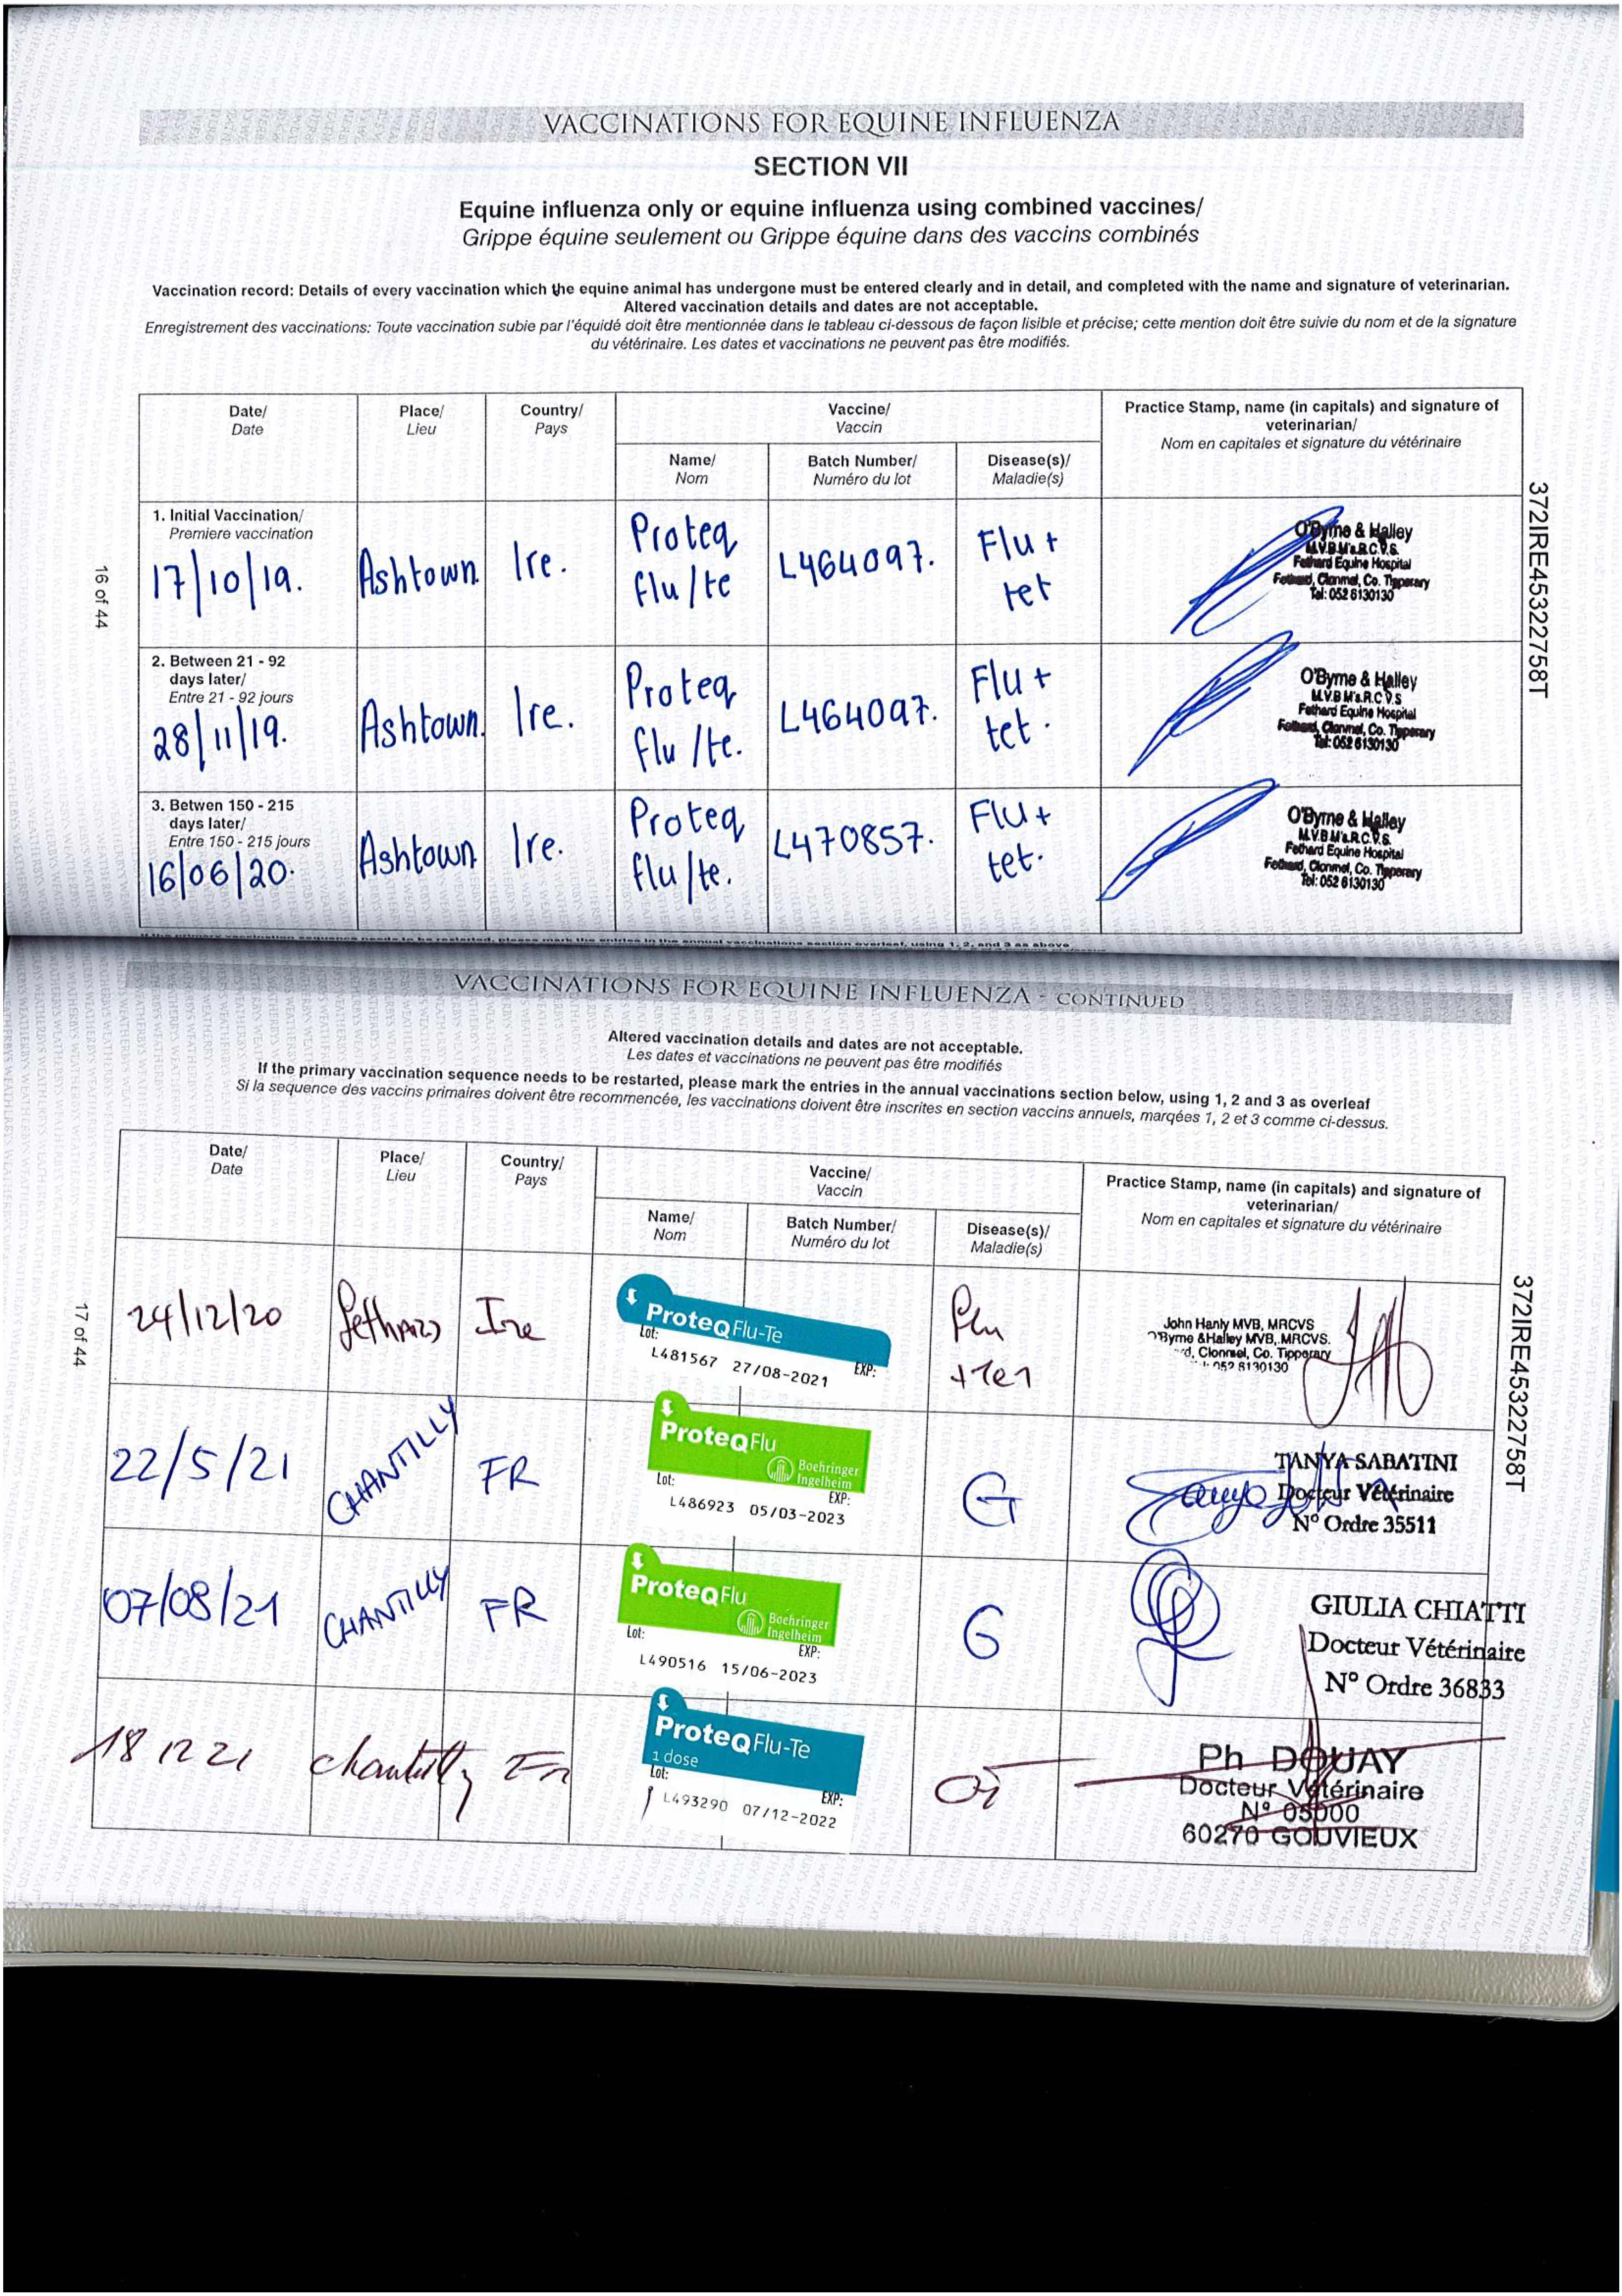 VACCINATIONS FOR EQUINE INFLUENZA
SECTION VII
Equine influenza only or equine influenza using combined vaccines/
Grippe équine seulement ou Grippe équine dans des vaccins combinés
Vaccination record: Details of every vaccination which the equine animal has undergone must be entered clearly and in detail, and completed with the name and signature of veterinarian.
Altered vaccination details and dates are not acceptable.
Enregistrement des vaccinations: Toute vaccination subie par l'équidé doit être mentionnée dans le tableau ci-dessous de façon lisible et précise; cette mention doit être suivie du nom et de la signature
du vétérinaire. Les dates et vaccinations ne peuvent pas être modifiés.
Date/
Date
Place/
Lieu
Country/
Pays
Vaccine/
Vaccin
Practice Stamp, name (in capitals) and signature of
veterinarian/
Nom en capitales et signature du vétérinaire
Name/
Nom
Batch Number/
Numéro du lot
Disease(s)/
Maladie(s)
1. Initial Vaccination/
Premiere vaccination
17/10/19.
Ashtown
Ire.
Proteq
flu/te
L464097.
Flu +
tet
O'Byrne & Halley
M.V.B M's.R.C.V.S.
Fethard Equine Hospital
Fethard, Clonmel, Co. Tipperary
Tel: 052 6130130
2. Between 21 - 92
days later/
Entre 21 - 92 jours
28/11/19.
Ashtown.
Ire.
Proteq
flu/te.
L464097.
Flu +
tet.
O'Byrne & Halley
M.V.B M's.R.C.V.S
Fethard Equine Hospital
Fethard, Clonmel, Co. Tipperary
Tel: 052 6130130
3. Betwen 150 - 215
days later/
Entre 150 - 215 jours
16/06/20.
Ashtown
Ire.
Proteq
flu/te.
L470857.
Flu +
tet.
O'Byrne & Halley
M.V.B M's.R.C.V.S.
Fethard Equine Hospital
Fethard, Clonmel, Co. Tipperary
Tel: 052 6130130
16 of 44
372IRE45322758T
If the primary vaccination sequence needs to be restarted, please mark the entries in the annual vaccinations section overleaf, using 1, 2, and 3 as above
VACCINATIONS FOR EQUINE INFLUENZA - CONTINUED
Altered vaccination details and dates are not acceptable.
Les dates et vaccinations ne peuvent pas être modifiés
If the primary vaccination sequence needs to be restarted, please mark the entries in the annual vaccinations section below, using 1, 2 and 3 as overleaf
Si la sequence des vaccins primaires doivent être recommencée, les vaccinations doivent être inscrites en section vaccins annuels, marqées 1, 2 et 3 comme ci-dessus.
Date/
Date
Place/
Lieu
Country/
Pays
Vaccine/
Vaccin
Practice Stamp, name (in capitals) and signature of
veterinarian/
Nom en capitales et signature du vétérinaire
Name/
Nom
Batch Number/
Numéro du lot
Disease(s)/
Maladie(s)
24/12/20
Ire
ProteqFlu-Te
Lot:
EXP:
L481567 27/08-2021
Flu
+Tet
John Hanly MVB, MRCVS
O'Byrne &Halley MVB, MRCVS.
Clonmel, Co. Tipperary
052 6130130
22/5/21
CHANTILLY
FR
ProteqFlu
Boehringer
Ingelheim
Lot:
EXP:
L486923 05/03-2023
G
TANYA SABATINI
Docteur Vétérinaire
N° Ordre 35511
07/08/21
CHANTILLY
FR
ProteqFlu
Boehringer
Ingelheim
Lot:
EXP:
L490516 15/06-2023
G
GIULIA CHIATTI
Docteur Vétérinaire
N° Ordre 36833
18 12 21
Chantilly
Fr
ProteqFlu-Te
1 dose
Lot:
EXP:
L493290 07/12-2022
Ph DOUAY
Docteur Vétérinaire
N° 05000
60270 GOUVIEUX
17 of 44
372IRE45322758T